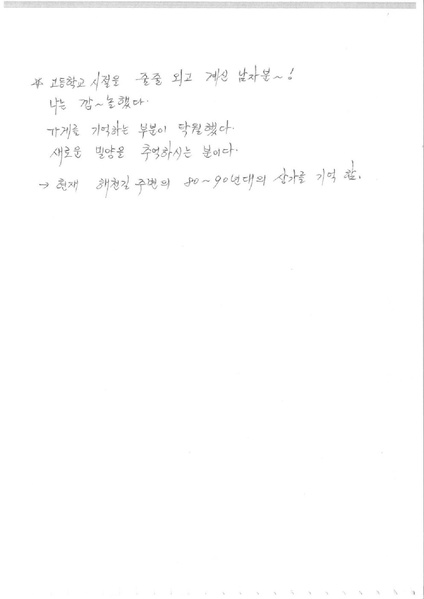 ※ 고등학교 시절을 줄줄 외고 계신 남자분~!
나는 깜~놀했다.
가게를 기억하는 부분이 탁월했다.
새로운 밀양을 추억하시는 분이다.
→ 현재 해천길 주변의 80~90년대의 상가를 기억함.